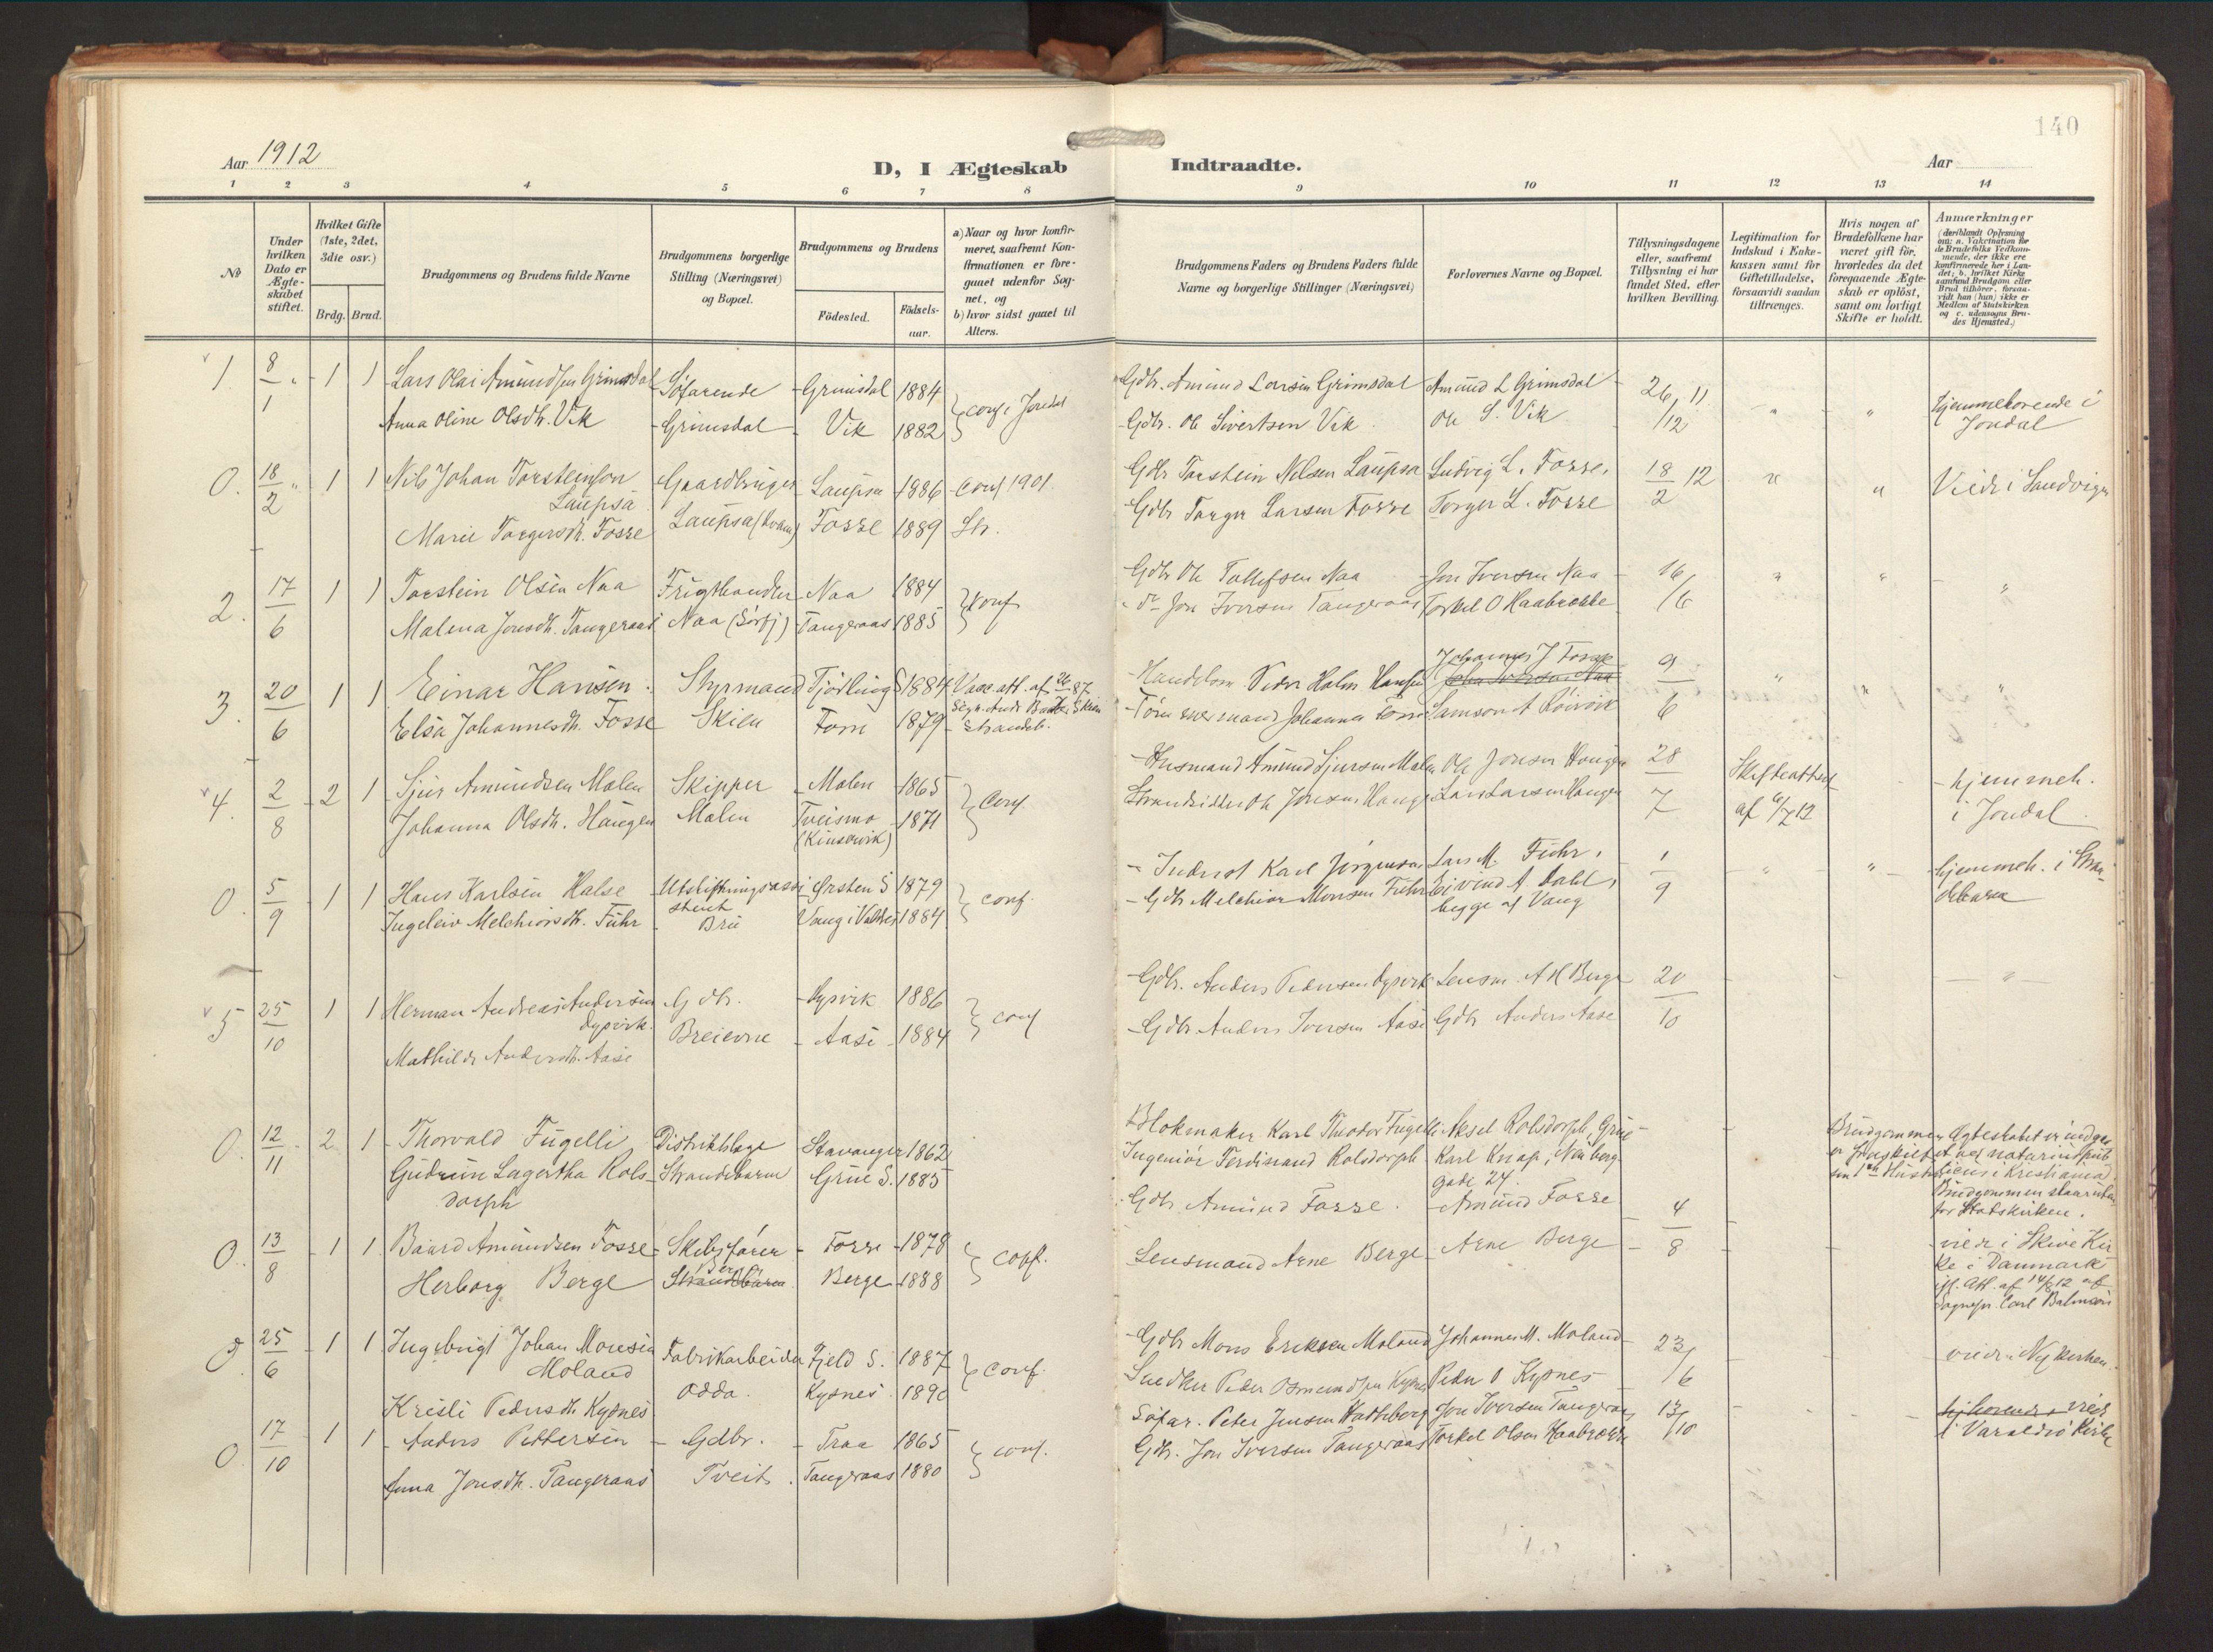 140
Aar 1912
D, I Ægteskab Indtraadte.
Aar
1 2 3 4 5 6 7 8 9 10 11 12 13 14
No
Under hvilken Dato er Ægteskabet stiftet.
Hvilket Gifte (1ste, 2det, 3die osv.)
Brdg. Brud.
Brudgommens og Brudens fulde Navne
Brudgommens borgerlige Stilling (Næringsvei) og Bopæl.
Brudgommens og Brudens
Fødested.
Fødselsaar.
a) Naar og hvor konfirmeret, saafremt Konfirmationen er foregaaet udenfor Sognet, og
b) hvor sidst gaaet til Alters.
Brudgommens Faders og Brudens Faders fulde Navne og borgerlige Stillinger (Næringsvei)
Forlovernes Navne og Bopæl.
Tillysningsdagene eller, saafremt Tillysning ei har fundet Sted, efter hvilken Bevilling.
Legitimation for Indskud i Enkekassen samt for Giftetilladelse, forsaavidt saadan tiltrænges.
Hvis nogen af Brudefolkene har været gift før, hvorledes da det foregaaende Ægteskab er opløst, samt om lovligt Skifte er holdt.
Anmærkninger (deriblandt Oplysning om: a. Vakcination for de Brudefolks Vedkommende, der ikke ere konfirmerede her i Landet; b. hvilket Kirkesamfund Brudgom eller Brud tilhører, forsaavidt han (hun) ikke er Medlem af Statskirken og c. udensogns Brudes Hjemsted.)
1. 8/1 1 1 Lars Olai Amundsen Grimsdal Søfarende Grimsdal 1884 conf i Jondal Gdbr. Amund Larsen Grimsdal Amund L Grimsdal 26/11 hjemmehørende i
Anna Oline Olsdtr. Vik Grimsdal Vik 1882 Gdbr. Ole Sivertsen Vik Ole S. Vik /12 Jondal
0. 18/2 1 1 Nils Johan Torsteinson Gaardbruger Laupsa 1886 conf 1901 Gdbr Torstein Nilsen Laupsa Ludvig L. Fosse 18/2 12 Viede i Sandvigen
Laupsa
Marie Torgersdtr. Fosse Laupsa (Kvam) Fosse 1889 Str. Gdbr Torger Larsen Fosse Torger L. Fosse
2. 17/6 1 1 Torstein Olsen Naa Frugthandler Naa 1884 conf Gdbr Ole Tollefsen Naa Jon Iversen Naa 16/6
Malena Jonsdtr. Tangeraas Naa (Sørfj) Tangeraas 1885 do Jon Iversen Tangeraas Torkel O Haabrekke
3. 20/6 1 1 Einar Hansen Styrmand Tjølling S 1884 Vacc.att. af 26/ 87 Peder Holm Hansen Johannes J Fosse 9/6
Elsa Johannesdtr. Fosse Skien Fosse 1879 Strandeb. Johannes Fosse Samson A Røivik
4. 2/8 2 1 Sjur Amundsen Malen Skipper Malen 1865 Conf Husmand Amund Sjursen Malen Ole Jonsen Haugen 28/7 Skifteattest hjemmeh.
Johanna Olsdtr. Haugen Malen Tveismo 1871 Strandsidder Ole Jonsen Haugen Lars Larsen Haugen af 6/7 12 i Jondal
(Kinsarvik)
0. 5/9 1 1 Hans Karlsen Halse Utskiftningsassi Ørsten S 1879 conf. Inderst Karl Jørgensen Lars M. Føhr 1/9 hjemmeh. i Stran-
Ingeleiv Melchiorsdtr. Føhr stent Bru Vang i Valdres 1884 Gdbr Melchior Monsen Føhr Eivind A Dahl, debarm
begge af Vang
5 25/10 1 1 Herman Andreas Andersen Gdbr. Dysvik 1886 conf Gdbr. Anders Pedersen Dysvik Lensm. A H Berge 20/10
Dysvik
Mathilde Andersdtr. Aase Breievne Aase 1884 Gdbr Anders Iversen Aase Gdbr Anders Aase
0. 12/11 2 1 Thorvald Fugelli Distriktslæge Stavanger 1862 Blokmaker Karl Theodor Fugelli Aksel Rolsdorph, Grue Brudgommen Ægteskabet er indgaa
Gudrun Lagertha Rols- Strandebarm Grue S. 1885 Ingeniør Ferdinand Rolsdorph Karl Knap, Nüberg- er fraskilt
dorph gade 24. sin 1ste Hustru i Kristiania
Brudgommen staar uden
for Statskirken.
0. 13/8 1 1 Baard Amundsen Fosse Skibsfører Fosse 1878 conf. Gdbr Amund Fosse. Amund Fosse 4/8 viede i Skive Kir
Herborg Berge Berge Strandebarm Berge 1888 Lensmand Arne Berge Arne Berge ke i Danmark
ifl. Att. af 14/8 12 af
Sognepr. Carl
0. 25/6 1 1 Ingebrigt Johan Monsen Fabrikarbeider Fjeld S. 1887 conf. Gdbr Mons Eriksen Moland Johannes M. Moland 23/6 viede i Nykirken
Moland
Kristi Pedersdtr Kysnes Odda. Kysnes 1890 Snedker Peder Osmundsen Kysnes Peder O Kysnes
0. 17/10 1 1 Anders Pettersen Gdbr. Traa 1865 conf. Søfar. Peter Jensen Jon Iversen Tangeraas 13/10 viede
Anna Jonsdtr. Tangeraas Tveit Tangeraas 1880 Gdbr. Jon Iversen Tangeraas Torkel Olsen Haabrekke i Varaldsø Kirke